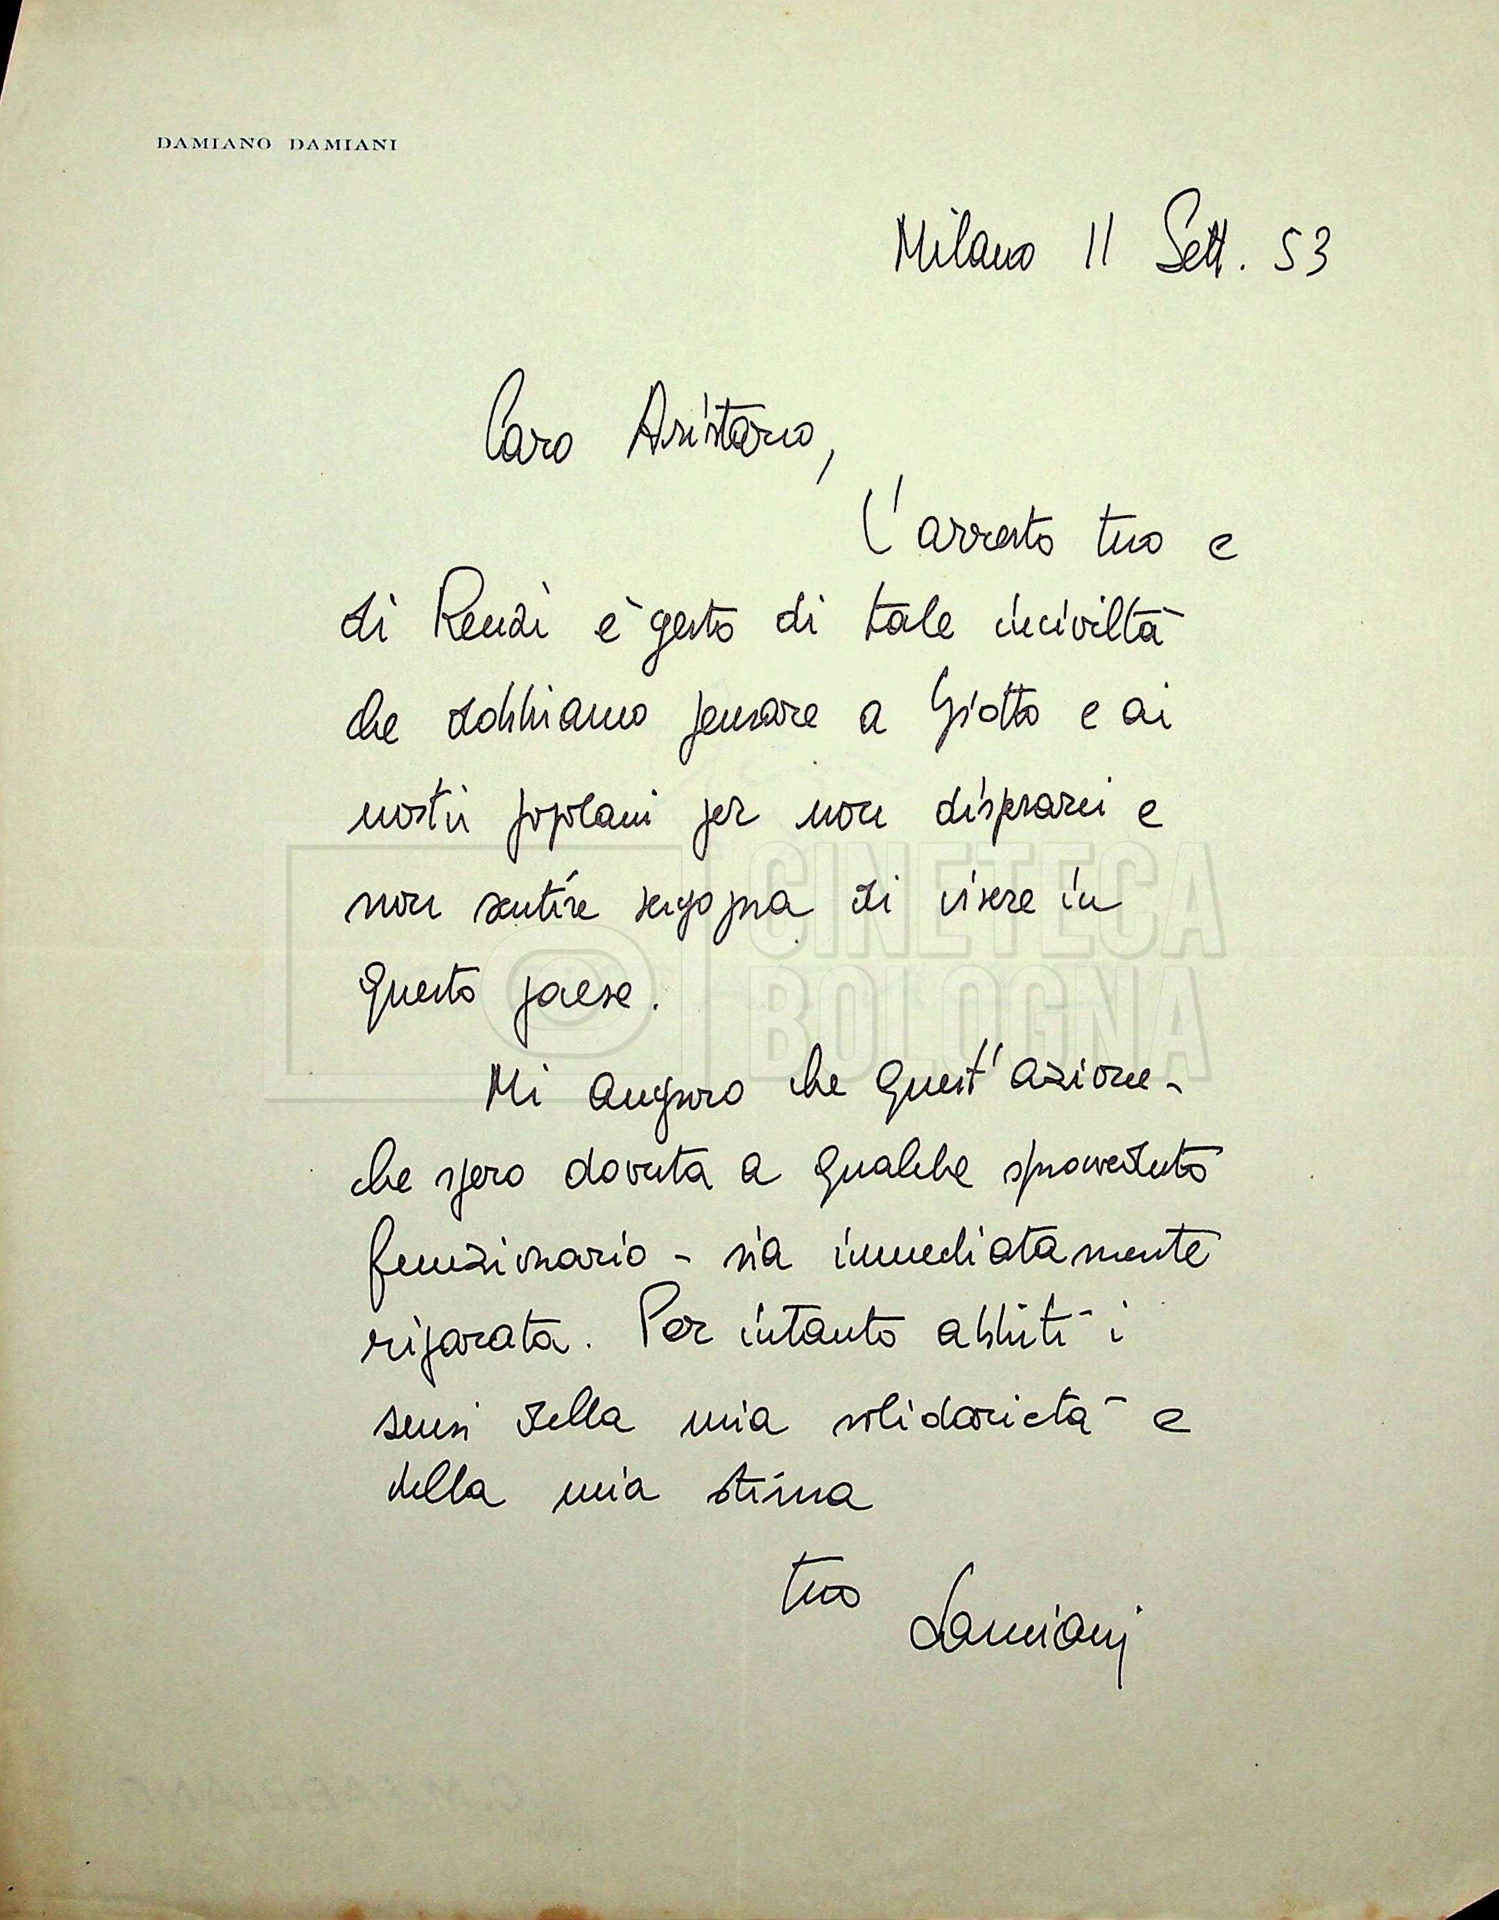 DAMIANO DAMIANI
Milano 11 Sett. 53
Caro Aristarco,
l'arresto tuo e
di Renzi è gesto di tale inciviltà
che dobbiamo pensare a Giotto e ai
nostri popolani per non disperarci e
non sentire vergogna di vivere in
questo paese.
Mi auguro che quest'azione -
che spero dovuta a qualche sprovveduto
funzionario - sia immediatamente
riparata. Per intanto abbiti i
sensi della mia solidarietà e
della mia stima
tuo
Damiani
CINETECA
BOLOGNA